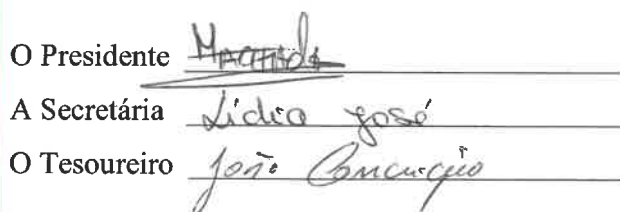 O Presidente Machado
A Secretária Lídia José
O Tesoureiro João Conceição